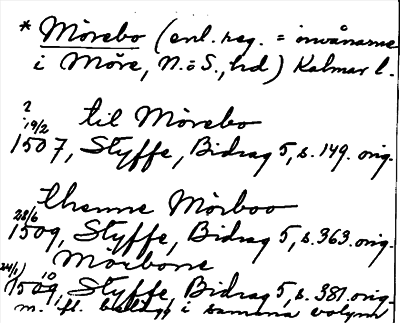 * Mörebo (enl. reg. = invånarne
i Möre, N. o S., hd) Kalmar l.
?
19/2 til Mörebo
1507, Styffe, Bidrag 5, s. 149. orig.
thenne Mörboo
28/6
1509, Styffe, Bidrag 5, s. 363. orig.
Morbone
24/1) 10
1509, Styffe, Bidrag 5, s. 381. orig.
m. fl. belägg i samma volym